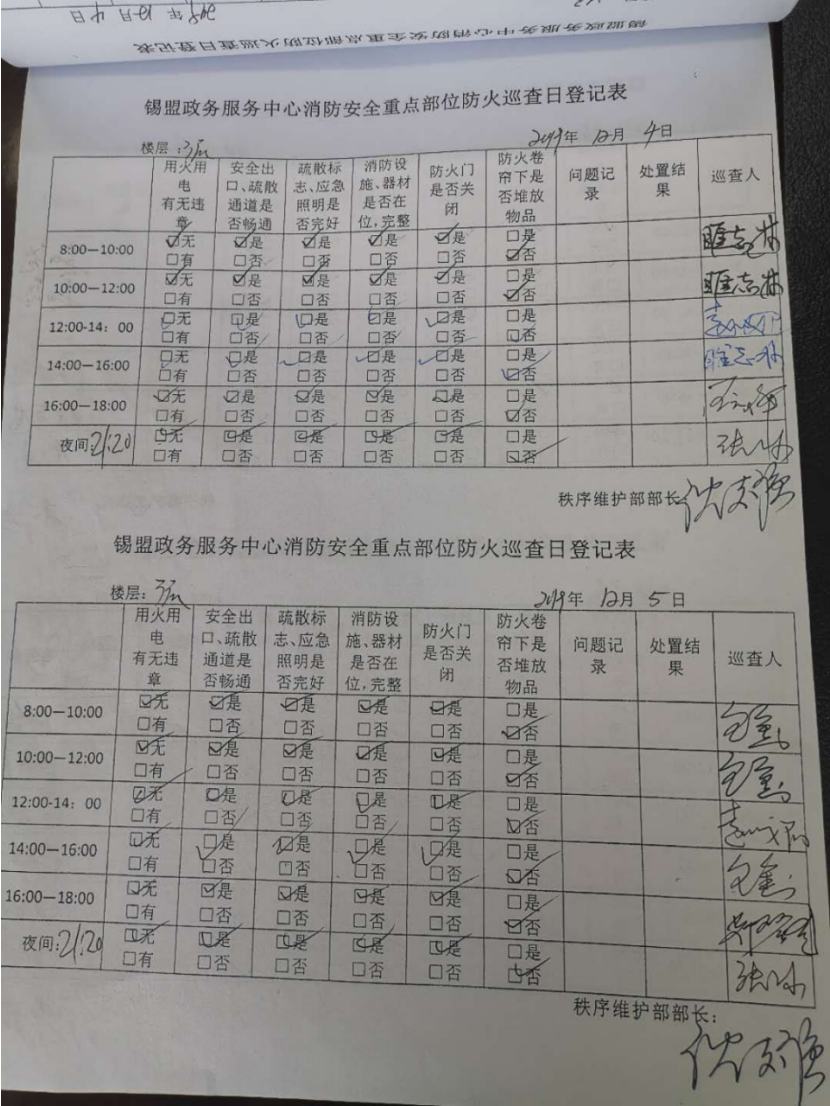 年12月4日
锡盟政务服务中心消防安全重点部位防火巡查日登记表
锡盟政务服务中心消防安全重点部位防火巡查日登记表
楼层:3层 2019年 12月 4日
用火用电有无违章 安全出口、疏散通道是否畅通 疏散标志、应急照明是否完好 消防设施、器材是否在位,完整 防火门是否关闭 防火卷帘下是否堆放物品 问题记录 处置结果 巡查人
8:00—10:00 ☑无 ☑是 ☑是 ☑是 ☑是 □是
□有 □否 □否 □否 □否 ☑否
10:00—12:00 ☑无 ☑是 ☑是 ☑是 ☑是 □是
□有 □否 □否 □否 □否 ☑否
12:00-14:00 ☑无 ☑是 ☑是 ☑是 ☑是 □是
□有 □否 □否 □否 □否 ☑否
14:00—16:00 ☑无 ☑是 ☑是 ☑是 ☑是 □是
□有 □否 □否 □否 □否 ☑否
16:00—18:00 ☑无 ☑是 ☑是 ☑是 ☑是 □是
□有 □否 □否 □否 □否 ☑否
夜间:21:20 ☑无 ☑是 ☑是 ☑是 ☑是 □是
□有 □否 □否 □否 □否 ☑否
秩序维护部部长:
锡盟政务服务中心消防安全重点部位防火巡查日登记表
楼层:3层 2019年 12月 5日
用火用电有无违章 安全出口、疏散通道是否畅通 疏散标志、应急照明是否完好 消防设施、器材是否在位,完整 防火门是否关闭 防火卷帘下是否堆放物品 问题记录 处置结果 巡查人
8:00—10:00 ☑无 ☑是 ☑是 ☑是 ☑是 □是
□有 □否 □否 □否 □否 ☑否
10:00—12:00 ☑无 ☑是 ☑是 ☑是 ☑是 □是
□有 □否 □否 □否 □否 ☑否
12:00-14:00 ☑无 ☑是 ☑是 ☑是 ☑是 □是
□有 □否 □否 □否 □否 ☑否
14:00—16:00 ☑无 ☑是 ☑是 ☑是 ☑是 □是
□有 □否 □否 □否 □否 ☑否
16:00—18:00 ☑无 ☑是 ☑是 ☑是 ☑是 □是
□有 □否 □否 □否 □否 ☑否
夜间:21:20 ☑无 ☑是 ☑是 ☑是 ☑是 □是
□有 □否 □否 □否 □否 ☑否
秩序维护部部长: